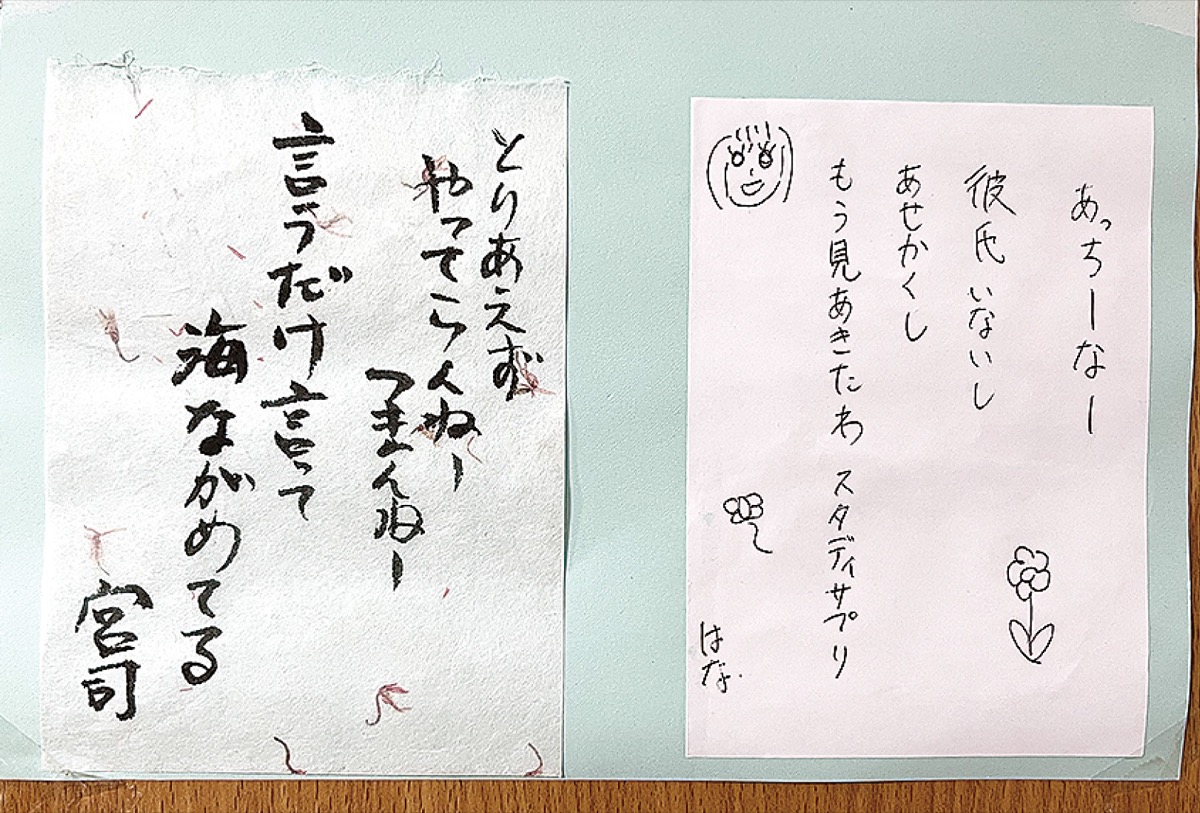 あっちーなー
彼氏いないし
あせかくし
もう見あきたわ スタディサプリ
はな
とりあえず
やってらんねー
つまんねー
言うだけ言って
海ながめてる
宮司